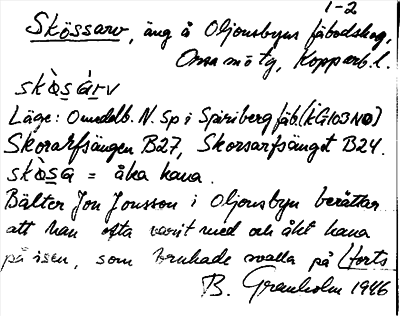 1-2
Skössarv, äng å Oljonsbyns fäbodskog,
Orsa sn o tg, Kopparb. l.
skò̱s á̱rv
Läge: Omedelb. N. Sp i Spiriberg fäb. (KG 103 NO)
Skorarfsängen B27, Skorsarfsänget B24.
skò̱sa = åka kana.
Bälter Jon Jonsson i Oljonsbyn berättar
att han ofta varit med och åkt kana
på isen, som brukade svalla på (forts
B. Granholm 1946